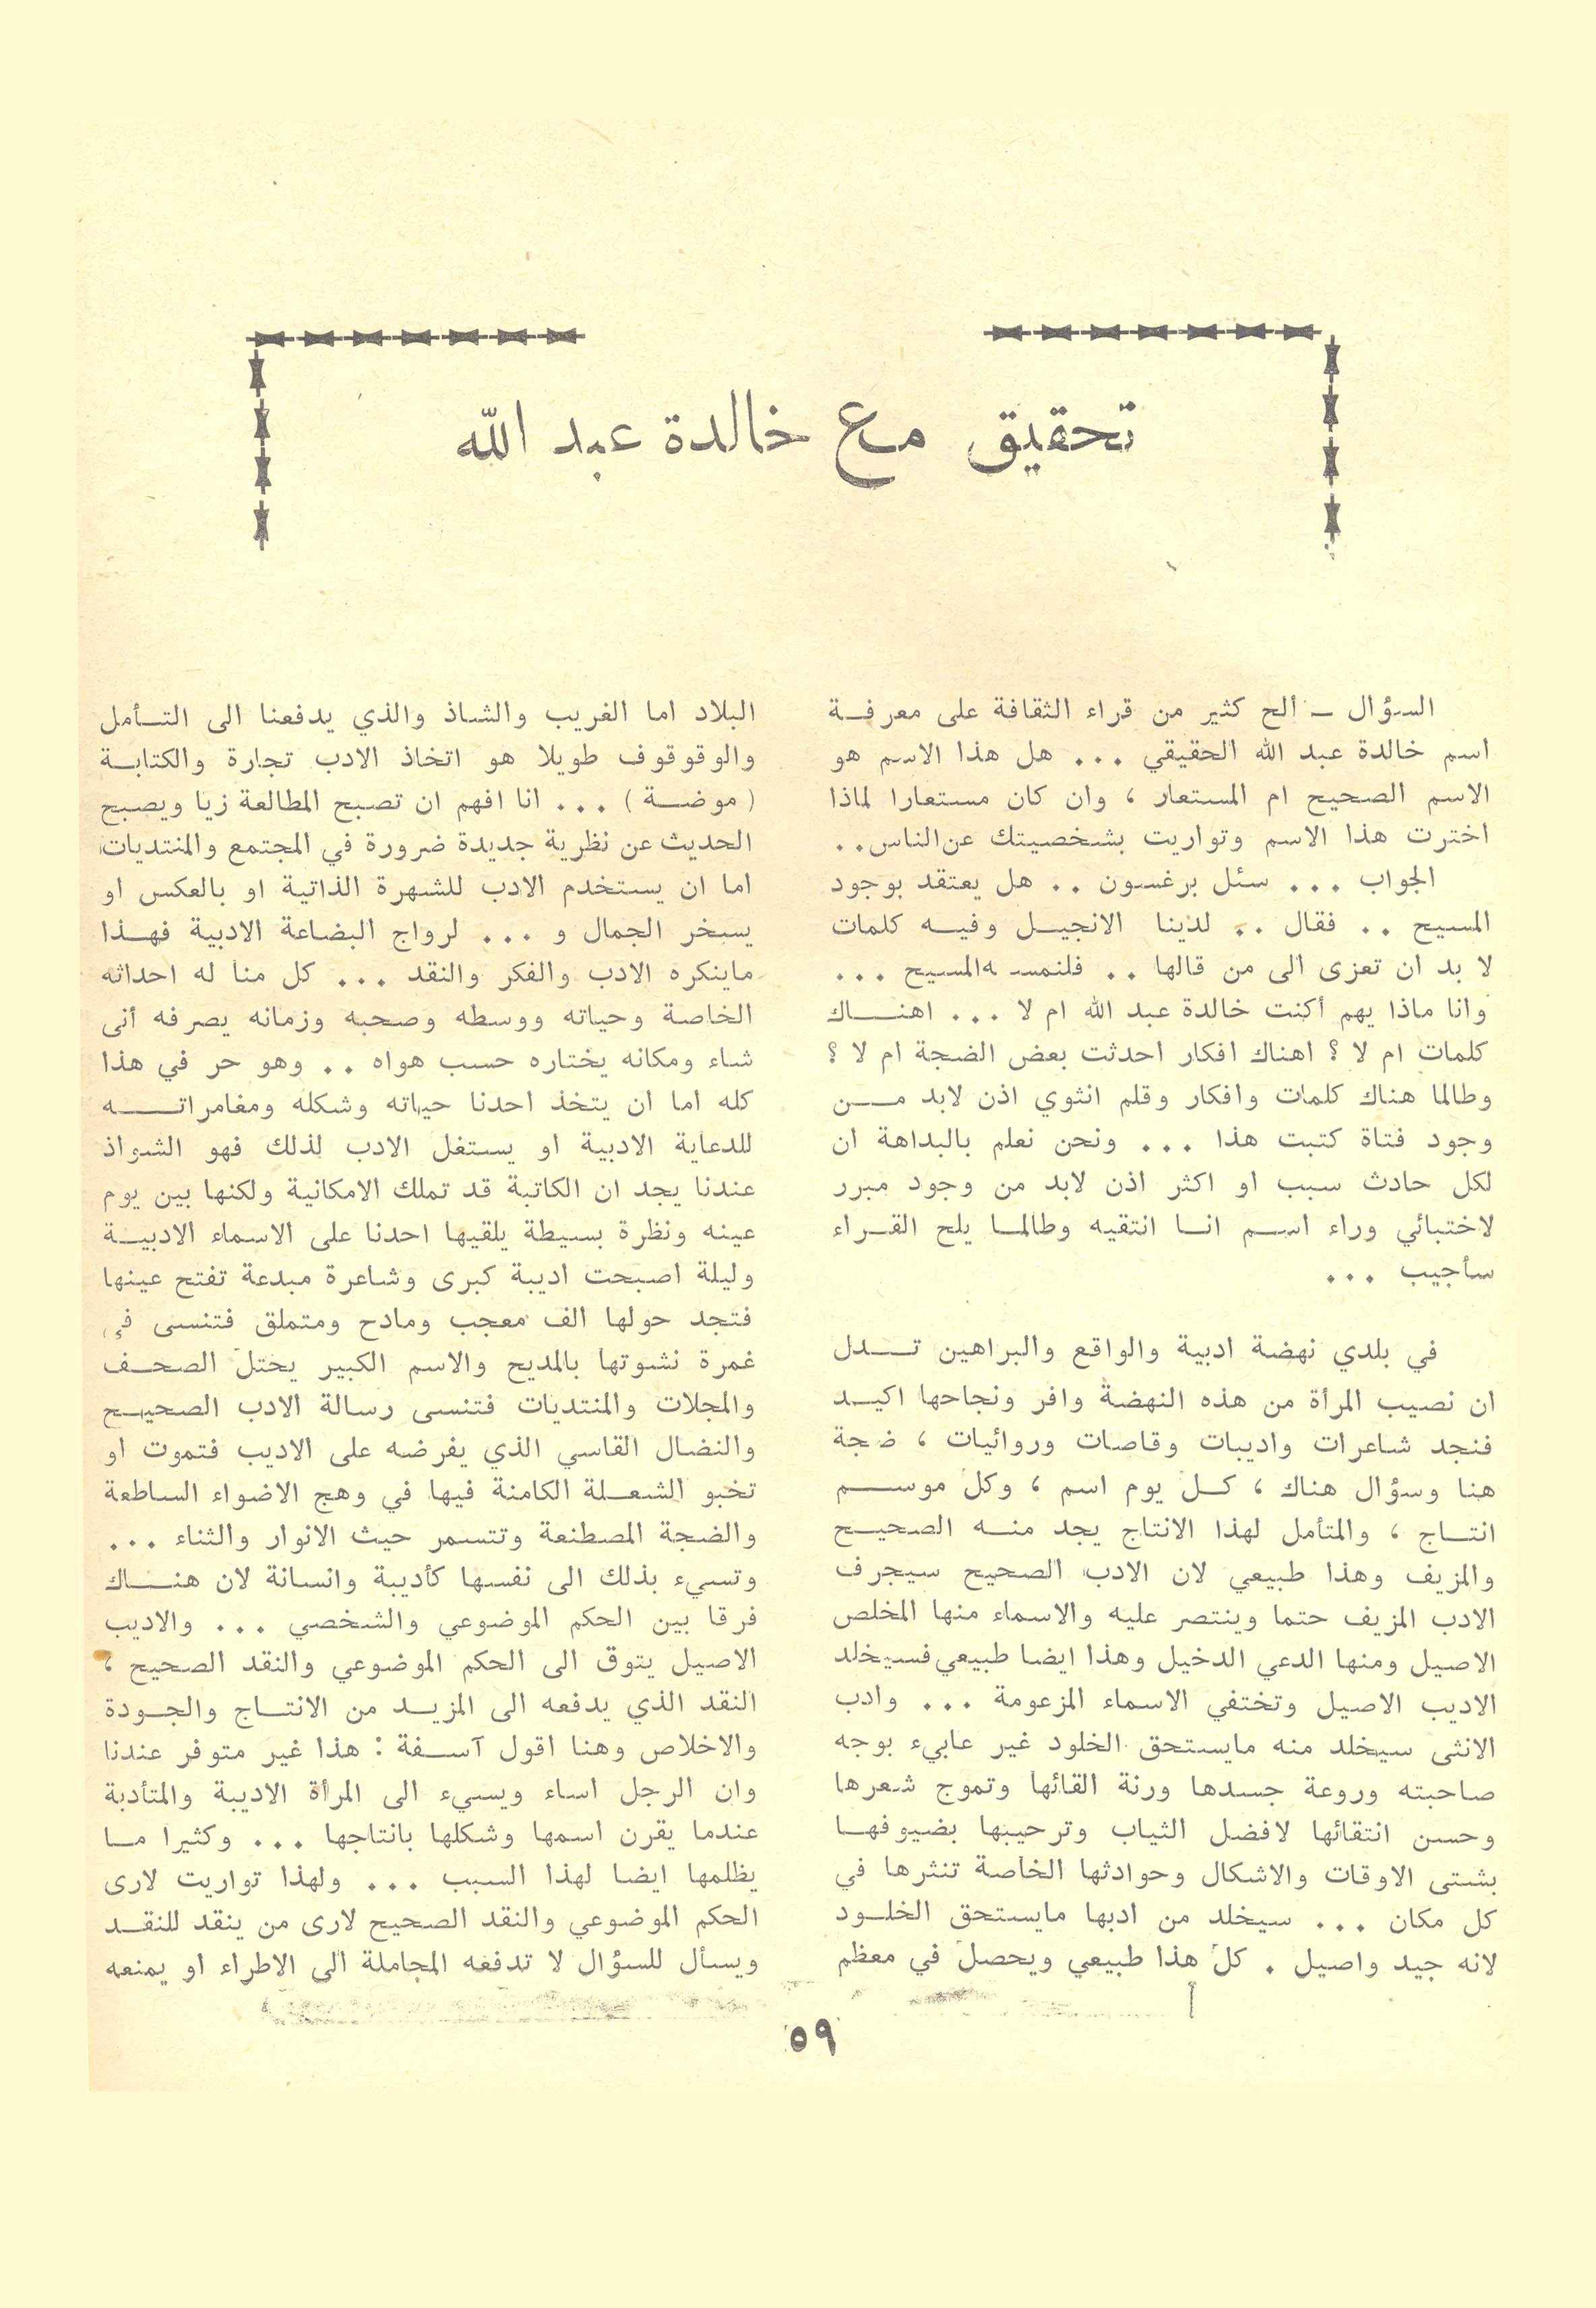 تحقيق مع خالدة عبد الله
السؤال ـ ألح كثير من قراء الثقافة على معرفة
اسم خالدة عبد الله الحقيقي ... هل هذا الاسم هو
الاسم الصحيح ام المستعار ، وان كان مستعارا لماذا
اخترت هذا الاسم وتواريت بشخصيتك عن الناس ..
الجواب ... سئل برغسون .. هل يعتقد بوجود
المسيح .. فقال .. لدينا الانجيل وفيه كلمات
لا بد ان تعزى الى من قالها .. فلنمسه المسيح ...
وانا ماذا يهم أكنت خالدة عبد الله ام لا ... اهناك
كلمات ام لا ؟ اهناك افكار احدثت بعض الضجة ام لا ؟
وطالما هناك كلمات وافكار وقلم انثوي اذن لابد من
وجود فتاة كتبت هذا ... ونحن نعلم بالبداهة ان
لكل حادث سبب او اكثر اذن لابد من وجود مبرر
لاختبائي وراء اسم انا انتقيه وطالما يلح القراء
سأجيب ...
في بلدي نهضة ادبية والواقع والبراهين تدل
ان نصيب المرأة من هذه النهضة وافر ونجاحها اكيد
فنجد شاعرات واديبات وقاصات وروائيات ، ضجة
هنا وسؤال هناك ، كل يوم اسم ، وكل موسم
انتاج ، والمتأمل لهذا الانتاج يجد منه الصحيح
والمزيف وهذا طبيعي لان الادب الصحيح سيجرف
الادب المزيف حتما وينتصر عليه والاسماء منها المخلص
الاصيل ومنها الدعي الدخيل وهذا ايضا طبيعي فسيخلد
الاديب الاصيل وتختفي الاسماء المزعومة ... وادب
الانثى سيخلد منه مايستحق الخلود غير عابيء بوجه
صاحبته وروعة جسدها ورنة القائها وتموج شعرها
وحسن انتقائها لافضل الثياب وترحيبها بضيوفها
بشتى الاوقات والاشكال وحوادثها الخاصة تنثرها في
كل مكان ... سيخلد من ادبها مايستحق الخلود
لانه جيد واصيل . كل هذا طبيعي ويحصل في معظم
البلاد اما الغريب والشاذ والذي يدفعنا الى التأمل
والوقوقوف طويلا هو اتخاذ الادب تجارة والكتابة
( موضة ) ... انا افهم ان تصبح المطالعة زيا ويصبح
الحديث عن نظرية جديدة ضرورة في المجتمع والمنتديات
اما ان يستخدم الادب للشهرة الذاتية او بالعكس او
يسخر الجمال و ... لرواج البضاعة الادبية فهذا
ماينكره الادب والفكر والنقد ... كل منا له احداثه
الخاصة وحياته ووسطه وصحبه وزمانه يصرفه أنى
شاء ومكانه يختاره حسب هواه .. وهو حر في هذا
كله اما ان يتخذ احدنا حياته وشكله ومغامراته
للدعاية الادبية او يستغل الادب لذلك فهو الشواذ
عندنا يجد ان الكاتبة قد تملك الامكانية ولكنها بين يوم
عينه ونظرة بسيطة يلقيها احدنا على الاسماء الادبية
وليلة اصبحت اديبة كبرى وشاعرة مبدعة تفتح عينها
فتجد حولها الف معجب ومادح ومتملق فتنسى في
غمرة نشوتها بالمديح والاسم الكبير يحتل الصحف
والمجلات والمنتديات فتنسى رسالة الادب الصحيح
والنضال القاسي الذي يفرضه على الاديب فتموت او
تخبو الشعلة الكامنة فيها في وهج الاضواء الساطعة
والضجة المصطنعة وتتسمر حيث الانوار والثناء ...
وتسيء بذلك الى نفسها كأديبة وانسانة لان هناك
فرقا بين الحكم الموضوعي والشخصي ... والاديب
الاصيل يتوق الى الحكم الموضوعي والنقد الصحيح ،
النقد الذي يدفعه الى المزيد من الانتاج والجودة
والاخلاص وهنا اقول آسفة : هذا غير متوفر عندنا
وان الرجل اساء ويسيء الى المرأة الاديبة والمتأدبة
عندما يقرن اسمها وشكلها بانتاجها ... وكثيرا ما
يظلمها ايضا لهذا السبب ... ولهذا تواريت لارى
الحكم الموضوعي والنقد الصحيح لارى من ينقد للنقد
ويسأل للسؤال لا تدفعه المجاملة الى الاطراء او يمنعه
٥٩